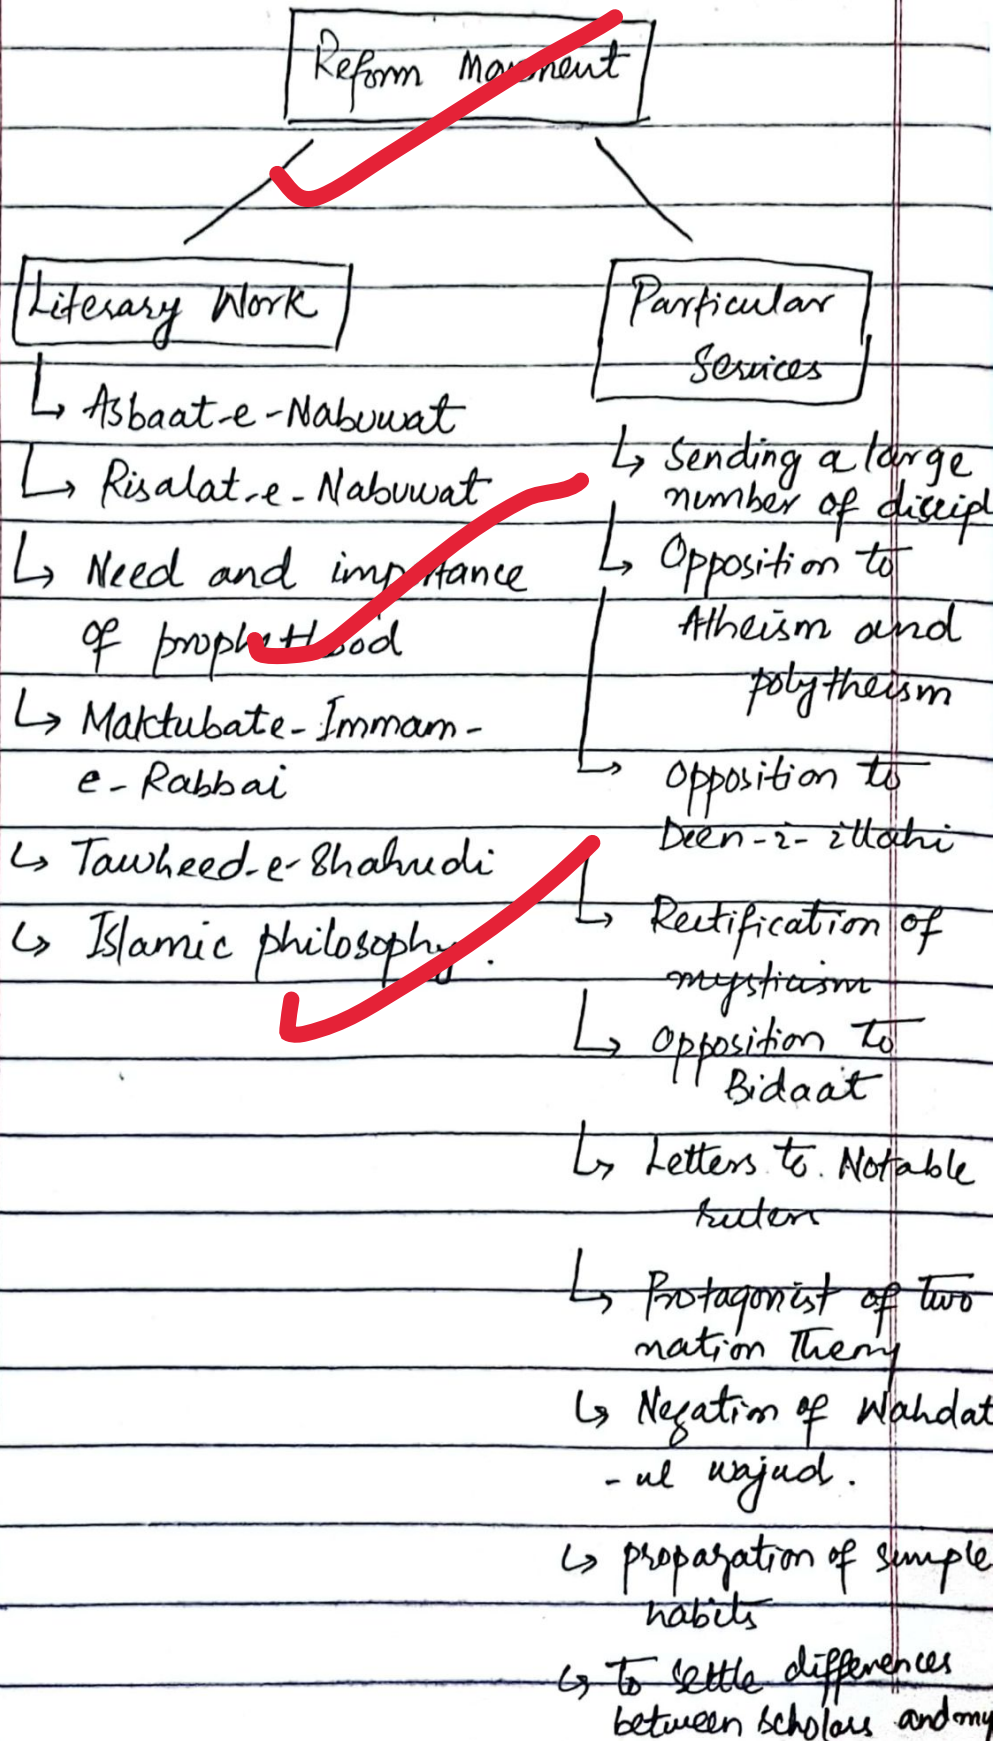 Reform Movment
Literary Work
↳ Asbaat-e-Nabuwat
↳ Risalat-e-Nabuwat
↳ Need and importance
of prophethood
↳ Maktubate-Immam-
e-Rabbai
↳ Tawheed-e-Shahudi
↳ Islamic philosophy.
Particular
Services
↳ Sending a large
number of discipl
↳ Opposition to
Atheism and
polytheism
↳ Opposition to
Deen-i-illahi
↳ Rectification of
mysticism
↳ Opposition to
Bidaat
↳ Letters to. Notable
rulers
↳ Protagonist of two
nation Theory
↳ Negation of Wahdat
-ul wajud.
↳ propagation of simple
habits
↳ To settle differences
between scholars and my